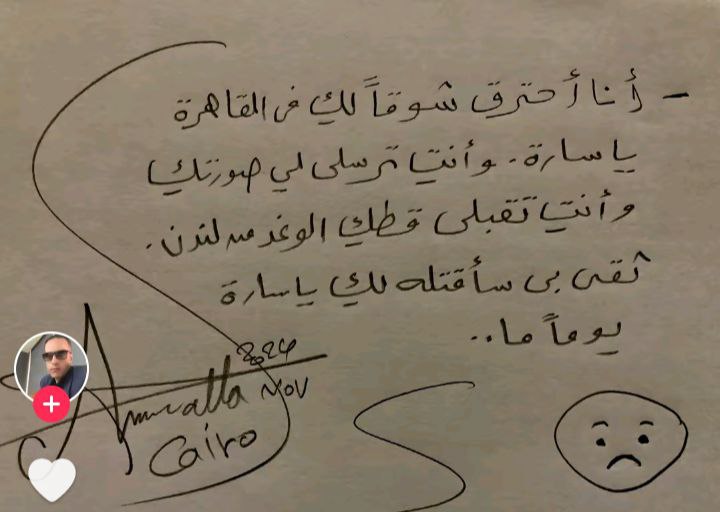 - أنا أحترق شوقاً لكِ فى القاهرة
يا سارة. وأنتِ ترسلى لي صورتكِ
وأنتِ تقبلى قطكِ الوغد من لندن.
ثقى بى سأقتله لكِ يا سارة
يوماً ما..
2024
NOV
Cairo